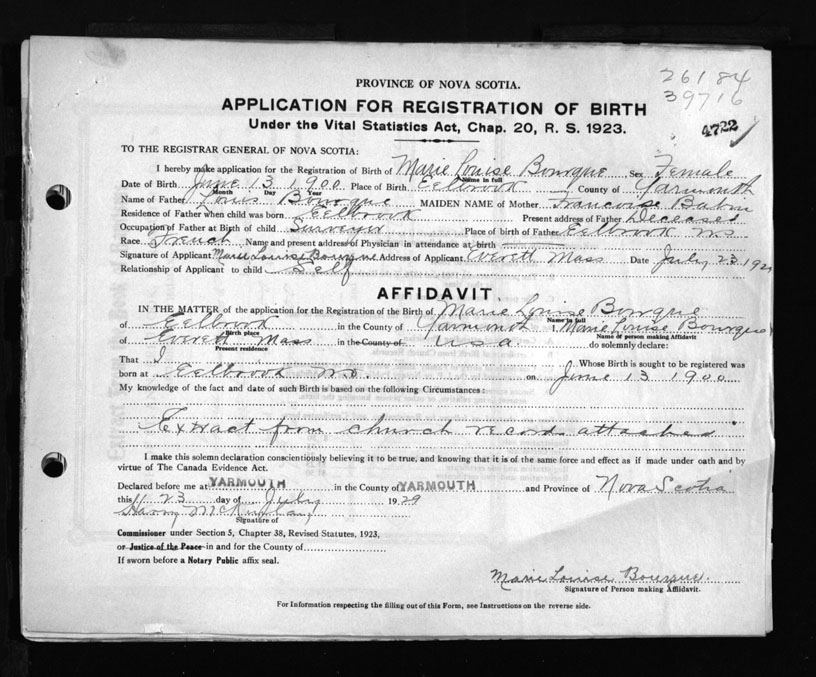 26184
39716
4722
PROVINCE OF NOVA SCOTIA.
APPLICATION FOR REGISTRATION OF BIRTH
Under the Vital Statistics Act, Chap. 20, R. S. 1923.
TO THE REGISTRAR GENERAL OF NOVA SCOTIA:
I hereby make application for the Registration of Birth of Marie Louise Bourque Sex Female
Name in full
Date of Birth June 13 1900 Place of Birth Eelbrook County of Yarmouth
Month Day Year
Name of Father Louis Bourque MAIDEN NAME of Mother Francoise Babin
Residence of Father when child was born Eelbrook Present address of Father Deceased
Occupation of Father at Birth of child Surveyor Place of birth of Father Eelbrook N S
Race French Name and present address of Physician in attendance at birth
Signature of Applicant Marie Louise Bourque Address of Applicant Everett Mass Date July 23 192
Relationship of Applicant to child Self
AFFIDAVIT
IN THE MATTER of the application for the Registration of the Birth of Marie Louise Bourque
Name in full
of Eelbrook in the County of Yarmouth I, Marie Louise Bourque
Birth place Name of person making Affidavit
of Everett Mass in the County of U S A do solemnly declare:
Present residence
That I Whose Birth is sought to be registered was
born at Eelbrook N S. on June 13 1900
My knowledge of the fact and date of such Birth is based on the following Circumstances:
Extract from church record attached
I make this solemn declaration conscientiously believing it to be true, and knowing that it is of the same force and effect as if made under oath and by
virtue of The Canada Evidence Act.
Declared before me at YARMOUTH in the County of YARMOUTH and Province of Nova Scotia
this 23 day of July 1929
Harry McKinlay
Signature of
Commissioner under Section 5, Chapter 38, Revised Statutes, 1923,
or Justice of the Peace in and for the County of
If sworn before a Notary Public affix seal.
Marie Louise Bourque.
Signature of Person making Affidavit.
For Information respecting the filling out of this Form, see Instructions on the reverse side.